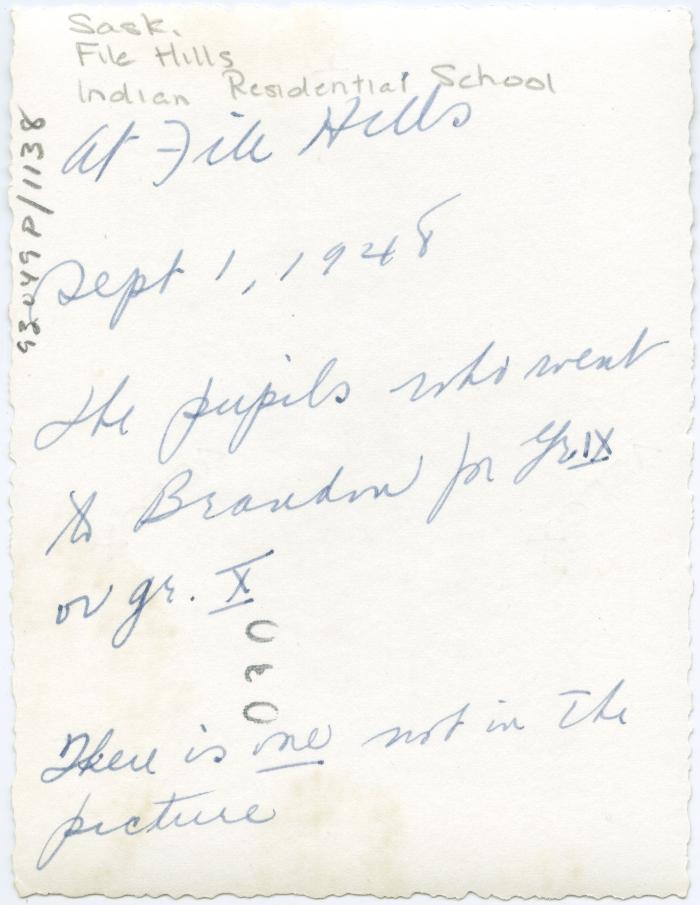 Sask.
File Hills
Indian Residential School
At File Hills
Sept 1, 1948
The pupils who went
to Brandon for Gr. IX
or gr. X
There is one not in the
picture
93.049P/1138